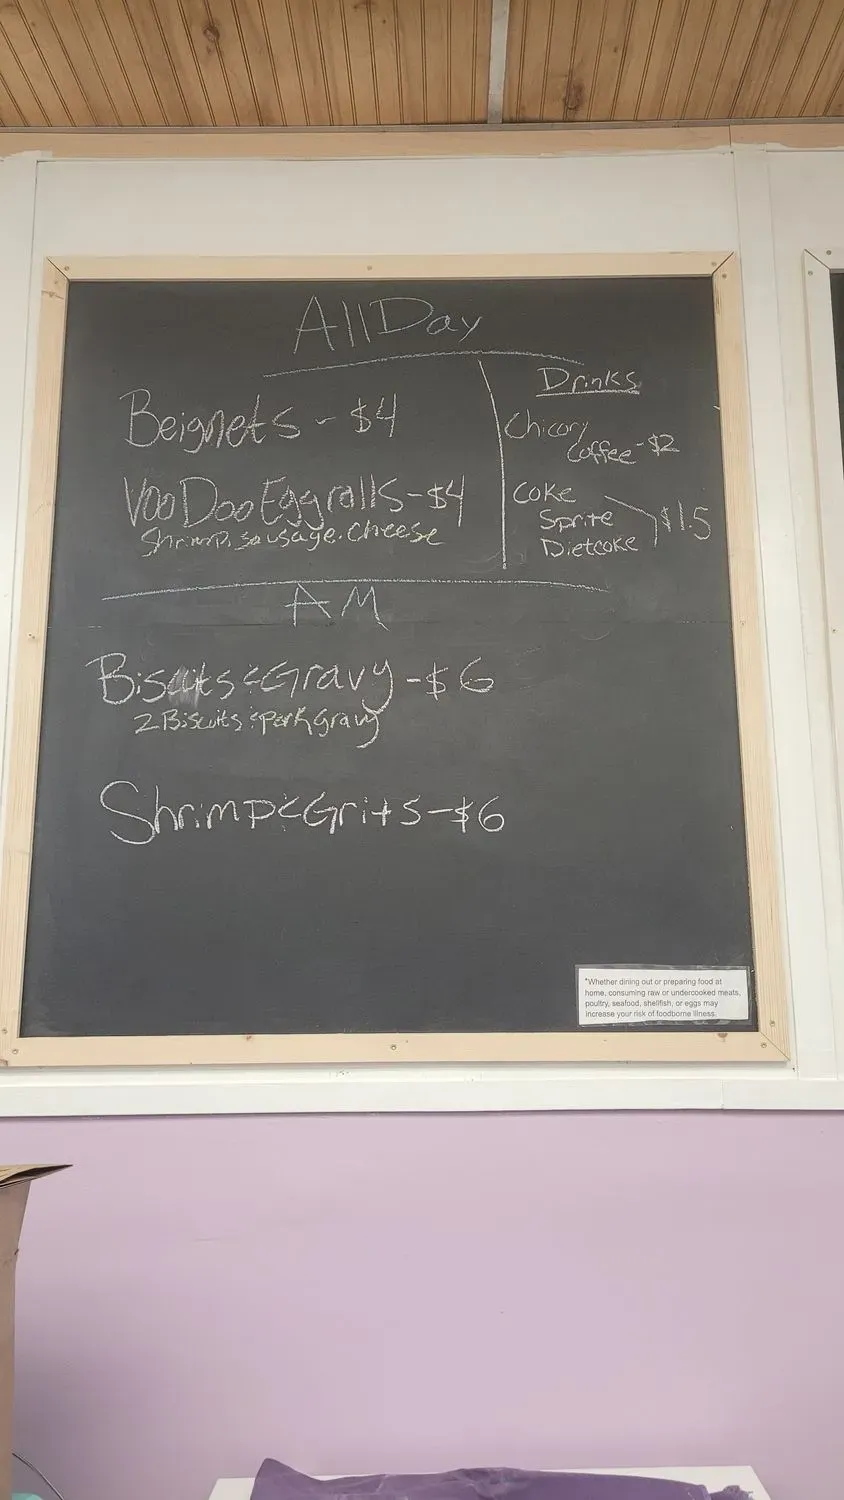 All Day
Beignets - $4
VooDoo Eggrolls - $4
Shrimp, sausage, cheese
Drinks
Chicory
Coffee - $2
Coke
Sprite
Dietcoke
$1.5
AM
Biscuits & Gravy - $6
2 Biscuits & Pork Gravy
Shrimp & Grits - $6
*Whether dining out or preparing food at
home, consuming raw or undercooked meats,
poultry, seafood, shellfish, or eggs may
increase your risk of foodborne illness.